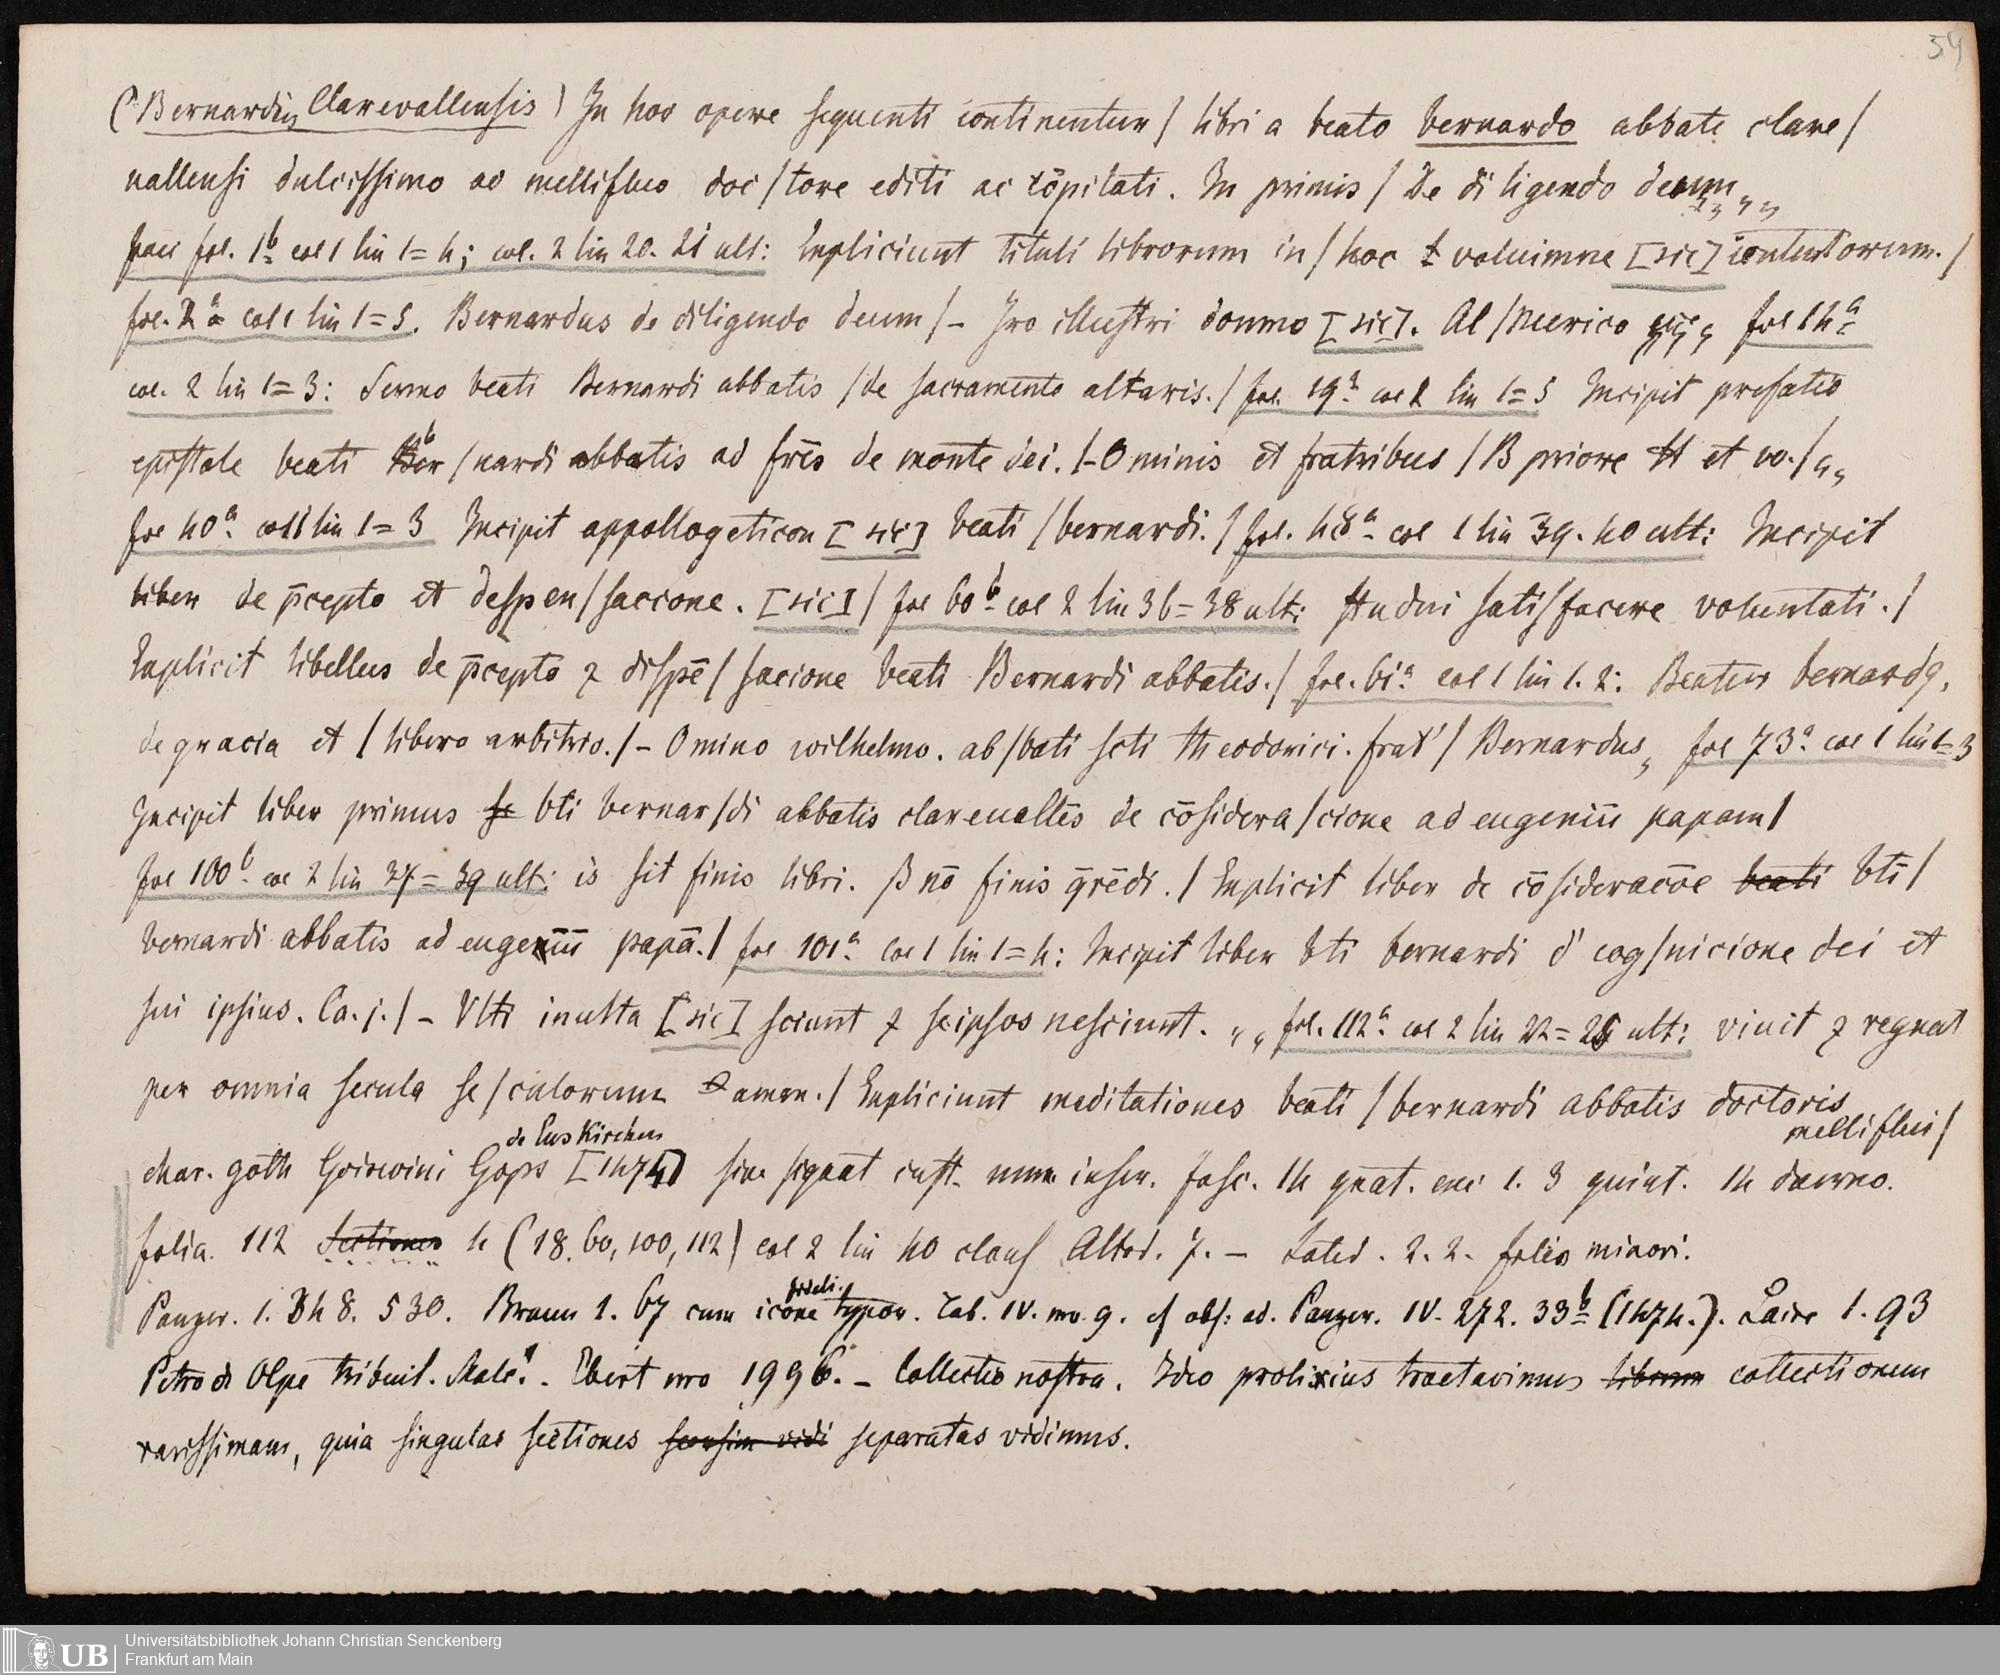 54
(Bernardus Clarevallensis) In hoc opere sequenti continentur / libri a beato bernardo abbate clare /
uallensi dulcissimo ac mellifluo doc / tore editi ac cōpilati. In primis / De diligendo deum „ „
fol. 1b col 1 lin 1=4; col. 2 lin 20. 21 ult: Expliciunt tituli librorum in / hoc voluimne [sic] contentorum. /
fol. 2a col 1 lin 1=5. Bernardus de diligendo deum / – Iro illustri donmo [sic]. Al / merico „ fol 14a
col. 2 lin 1=3: Sermo beati Bernardi abbatis / de sacramento altaris. / fol. 19b col 2 lin 1=5 Incipit prefatio
epistole beati ber / nardi abbatis ad frēs de monte dei. / – Ominis et fratribus / B priore H et vo. / „
fol 40a col 1 lin 1=3 Incipit appollogeticon [sic] beati / bernardi. / fol. 48a col 1 lin 39. 40 ult: Incipit
liber de p̄cepto et despen / saccone. [sic] / fol 60b col 2 lin 36=38 ult: studui satis / facere voluntati. /
Explicit libellus de p̄cepto ꝛ dispē / sacione beati Bernardi abbatis. / fol. 61a col 1 lin 1. 2: Beatus bernardꝯ,
de gracia et / libero arbitrio. / – Omino wilhelmo. ab / bati scti theodorici. frat' / Bernardus „ fol 73a col 1 lin 1=3
Incipit liber primus bti bernar / di abbatis clareuallēs de cōsidera / cione ad eugeniū papam /
fol 100b col 2 lin 37=39 ult: is sit finis libri. ß nō finis q̄rēdi. / Explicit liber de cōsideracōe beati bti /
bernardi abbatis ad eugeniū papā. / fol 101a col 1 lin 1=4: Incipit liber bti bernardi d' cog / nicione dei et
sui ipsius. Ca. j. / – Vlti inulta [sic] sciunt ꝛ seipsos nesciunt. „ fol. 112a col 2 lin 22=25 ult: viuit ꝛ regnat
per omnia secula se / culorum amen. / Expliciunt meditationes beati / bernardi abbatis doctoris
melliflui /
de Euskirchen
char. goth Goiswini Gops [1474] sine signat cust. num inser. fasc. 14 quat. exc 1. 3 quint. 14 duerno.
folia. 112 sectiones 4 (18. 60, 100, 112) col 2 lin 40 claus Altod. 7. – Lated. 2. 2. folio minori.
Panzer. 1. 348. 530. Braun 1. 67 cum icone typor. Tab. IV. nro 9. cf obs: ad. Panzer. IV. 272. 33b (1474.). Laire 1. 93
Petro de Olpe tribuit. Male! – Ebert nro 1996. – Collectio nostra. Ideo prolixius tractavimus librum collectionem
rarissimam, quia singulas sectiones seorsim vidi separatas vidimus.
UB Universitätsbibliothek Johann Christian Senckenberg
Frankfurt am Main